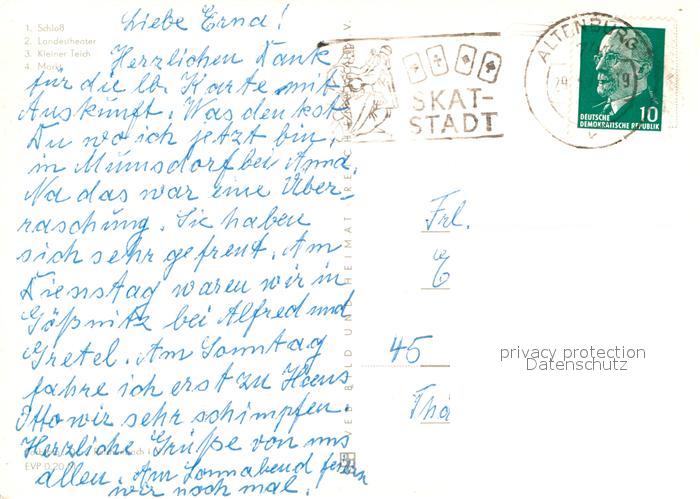 1. Schloß
2. Landestheater
3. Kleiner Teich
4. Markt
Liebe Erna!
Herzlichen Dank
für die lb. Karte mit
Auskunft. Was denkst
Du wo ich jetzt bin,
in Mumsdorf bei Anna.
Na das war eine Über-
raschung. Sie haben
sich sehr gefreut. Am
Dienstag waren wir in
Gößnitz bei Alfred und
Gretel. Am Sonntag
fahre ich erst zu Haus
Otto wir sehr schimpfen.
Herzliche Grüße von uns
allen. Am Sonnabend feiern
wir noch mal.
EVP 0,20
VEB BILD UND HEIMAT REICHENBACH I. V.
SKAT-
STADT
ALTENBURG
DEUTSCHE
DEMOKRATISCHE REPUBLIK
10
Frl.
E
45
Tha
privacy protection
Datenschutz